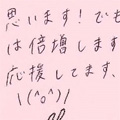 思います！でも
は倍増します
応援してます、
\(^o^)/